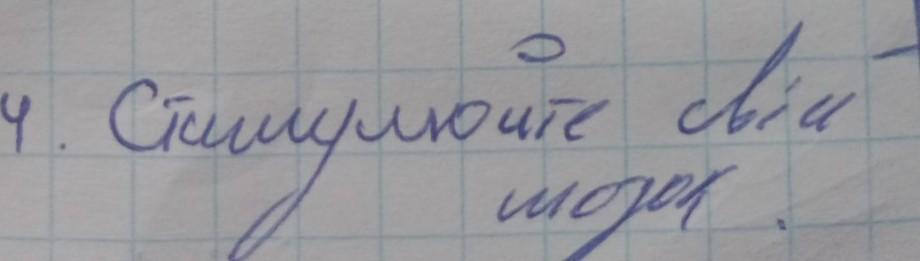 4. Стимулюйте свій
мозок.